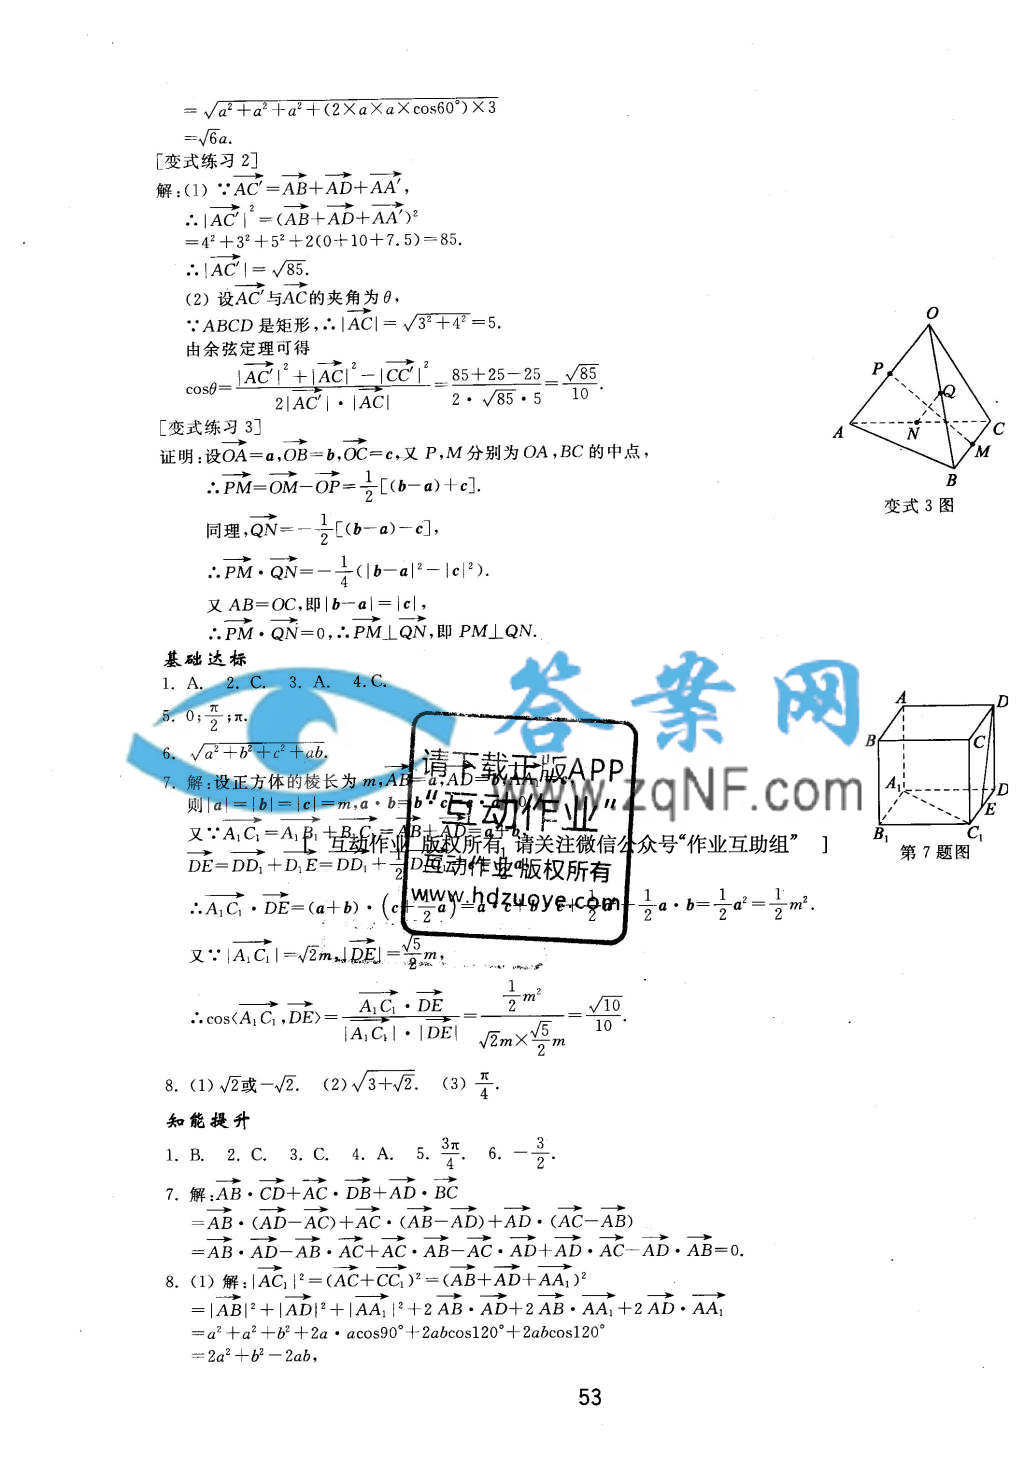 =√(a²+a²+a²+(2×a×a×cos60°)×3)
=√6a.
[变式练习 2]
解:(1) ∵AC′=AB+AD+AA′,
∴|AC′|²=(AB+AD+AA′)²
=4²+3²+5²+2(0+10+7.5)=85.
∴|AC′|=√85.
(2) 设AC′与AC的夹角为θ,
∵ABCD 是矩形,∴|AC|=√(3²+4²)=5.
由余弦定理可得
cosθ=(|AC′|²+|AC|²−|CC′|²)/(2|AC′|·|AC|)=(85+25−25)/(2·√85·5)=√85/10.
[变式练习 3]
证明:设OA=a,OB=b,OC=c,又 P,M 分别为 OA,BC 的中点,
∴PM=OM−OP=1/2[(b−a)+c].
同理,QN=−1/2[(b−a)−c],
∴PM·QN=−1/4(|b−a|²−|c|²).
又 AB=OC,即|b−a|=|c|,
∴PM·QN=0,∴PM⊥QN,即 PM⊥QN.
O
P
Q
A
N
C
M
B
变式 3 图
基础达标
1. A. 2. C. 3. A. 4. C.
5. 0;π/2;π.
6. √(a²+b²+c²+ab).
7. 解:设正方体的棱长为 m,AB=a,AD=b,AA
则|a|=|b|=|c|=m,a·b=b
又∵A₁C₁=A₁B₁+B₁C₁=AB+AD=a+b,
DE=DD₁+D₁E=DD₁+1/2
∴A₁C₁·DE=(a+b)·(c+1/2a)=a·c+b·c+1/2a²+1/2a·b=1/2a²=1/2m².
又∵|A₁C₁|=√2m,|DE|=√5/2m,
∴cos⟨A₁C₁,DE⟩=(A₁C₁·DE)/(|A₁C₁|·|DE|)=(1/2m²)/(√2m×√5/2m)=√10/10.
A
D
B
C
A₁
D
E
B₁
C₁
第 7 题图
答案网
www.zqNF.com
请下载正版APP
"互动作业"
互动作业 版权所有
www.hdzuoye.com
[ 互动作业 版权所有 请关注微信公众号“作业互助组” ]
8. (1) √2或−√2. (2) √(3+√2). (3) π/4.
知能提升
1. B. 2. C. 3. C. 4. A. 5. 3π/4. 6. −3/2.
7. 解:AB·CD+AC·DB+AD·BC
=AB·(AD−AC)+AC·(AB−AD)+AD·(AC−AB)
=AB·AD−AB·AC+AC·AB−AC·AD+AD·AC−AD·AB=0.
8. (1) 解:|AC₁|²=(AC+CC₁)²=(AB+AD+AA₁)²
=|AB|²+|AD|²+|AA₁|²+2 AB·AD+2 AB·AA₁+2 AD·AA₁
=a²+a²+b²+2a·acos90°+2abcos120°+2abcos120°
=2a²+b²−2ab,
53